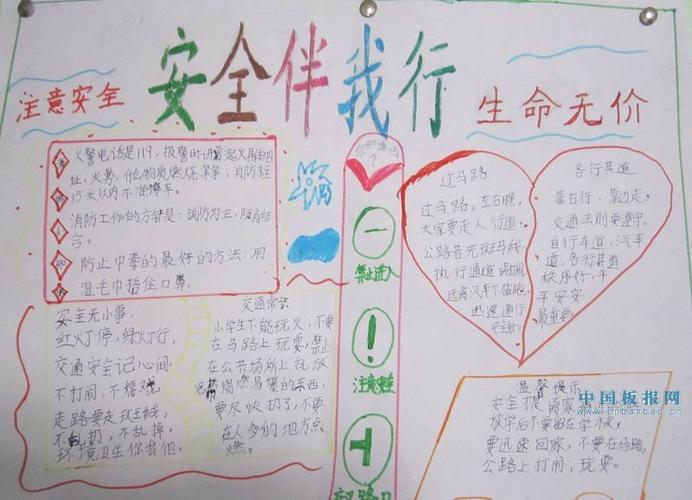 安全伴我行
注意安全
生命无价
火警电话是119,报警时讲着起火
址,火势,什么物质燃烧等等;消防栓
15米以内不准停车。
消防工作的方针是:预防为主,防消结
合。
防止中毒的最好的方法:用
湿毛巾捂住口鼻。
安全无小事
红灯停,绿灯行,
交通安全记心间
不打闹,不嬉戏
走路要走斑马线
不乱扔,不乱掉。
环境卫生你我他。
交通常识
小学生不能玩火,不要
在马路上玩耍,禁止
在公共场所上乱放
易燃易爆的东西,
要尽快扔了,不要
在人多的地方点
燃。
你知道吗
?
禁止进入
注意
过马路
过马路,左右瞧,
大家要走人行道
公路若无斑马线
执行通道
远离汽车不
迅速通行
各行其道
靠右行、靠边走,
交通法则要遵守。
自行车道,汽车
道,各行其道
秩序好,平
平安安
最重要
温馨提示
安全
放学后不要留在学校,
要迅速回家,不要在马路,
公路上打闹,玩耍。
中国板报网
www.cnbanbao.cn